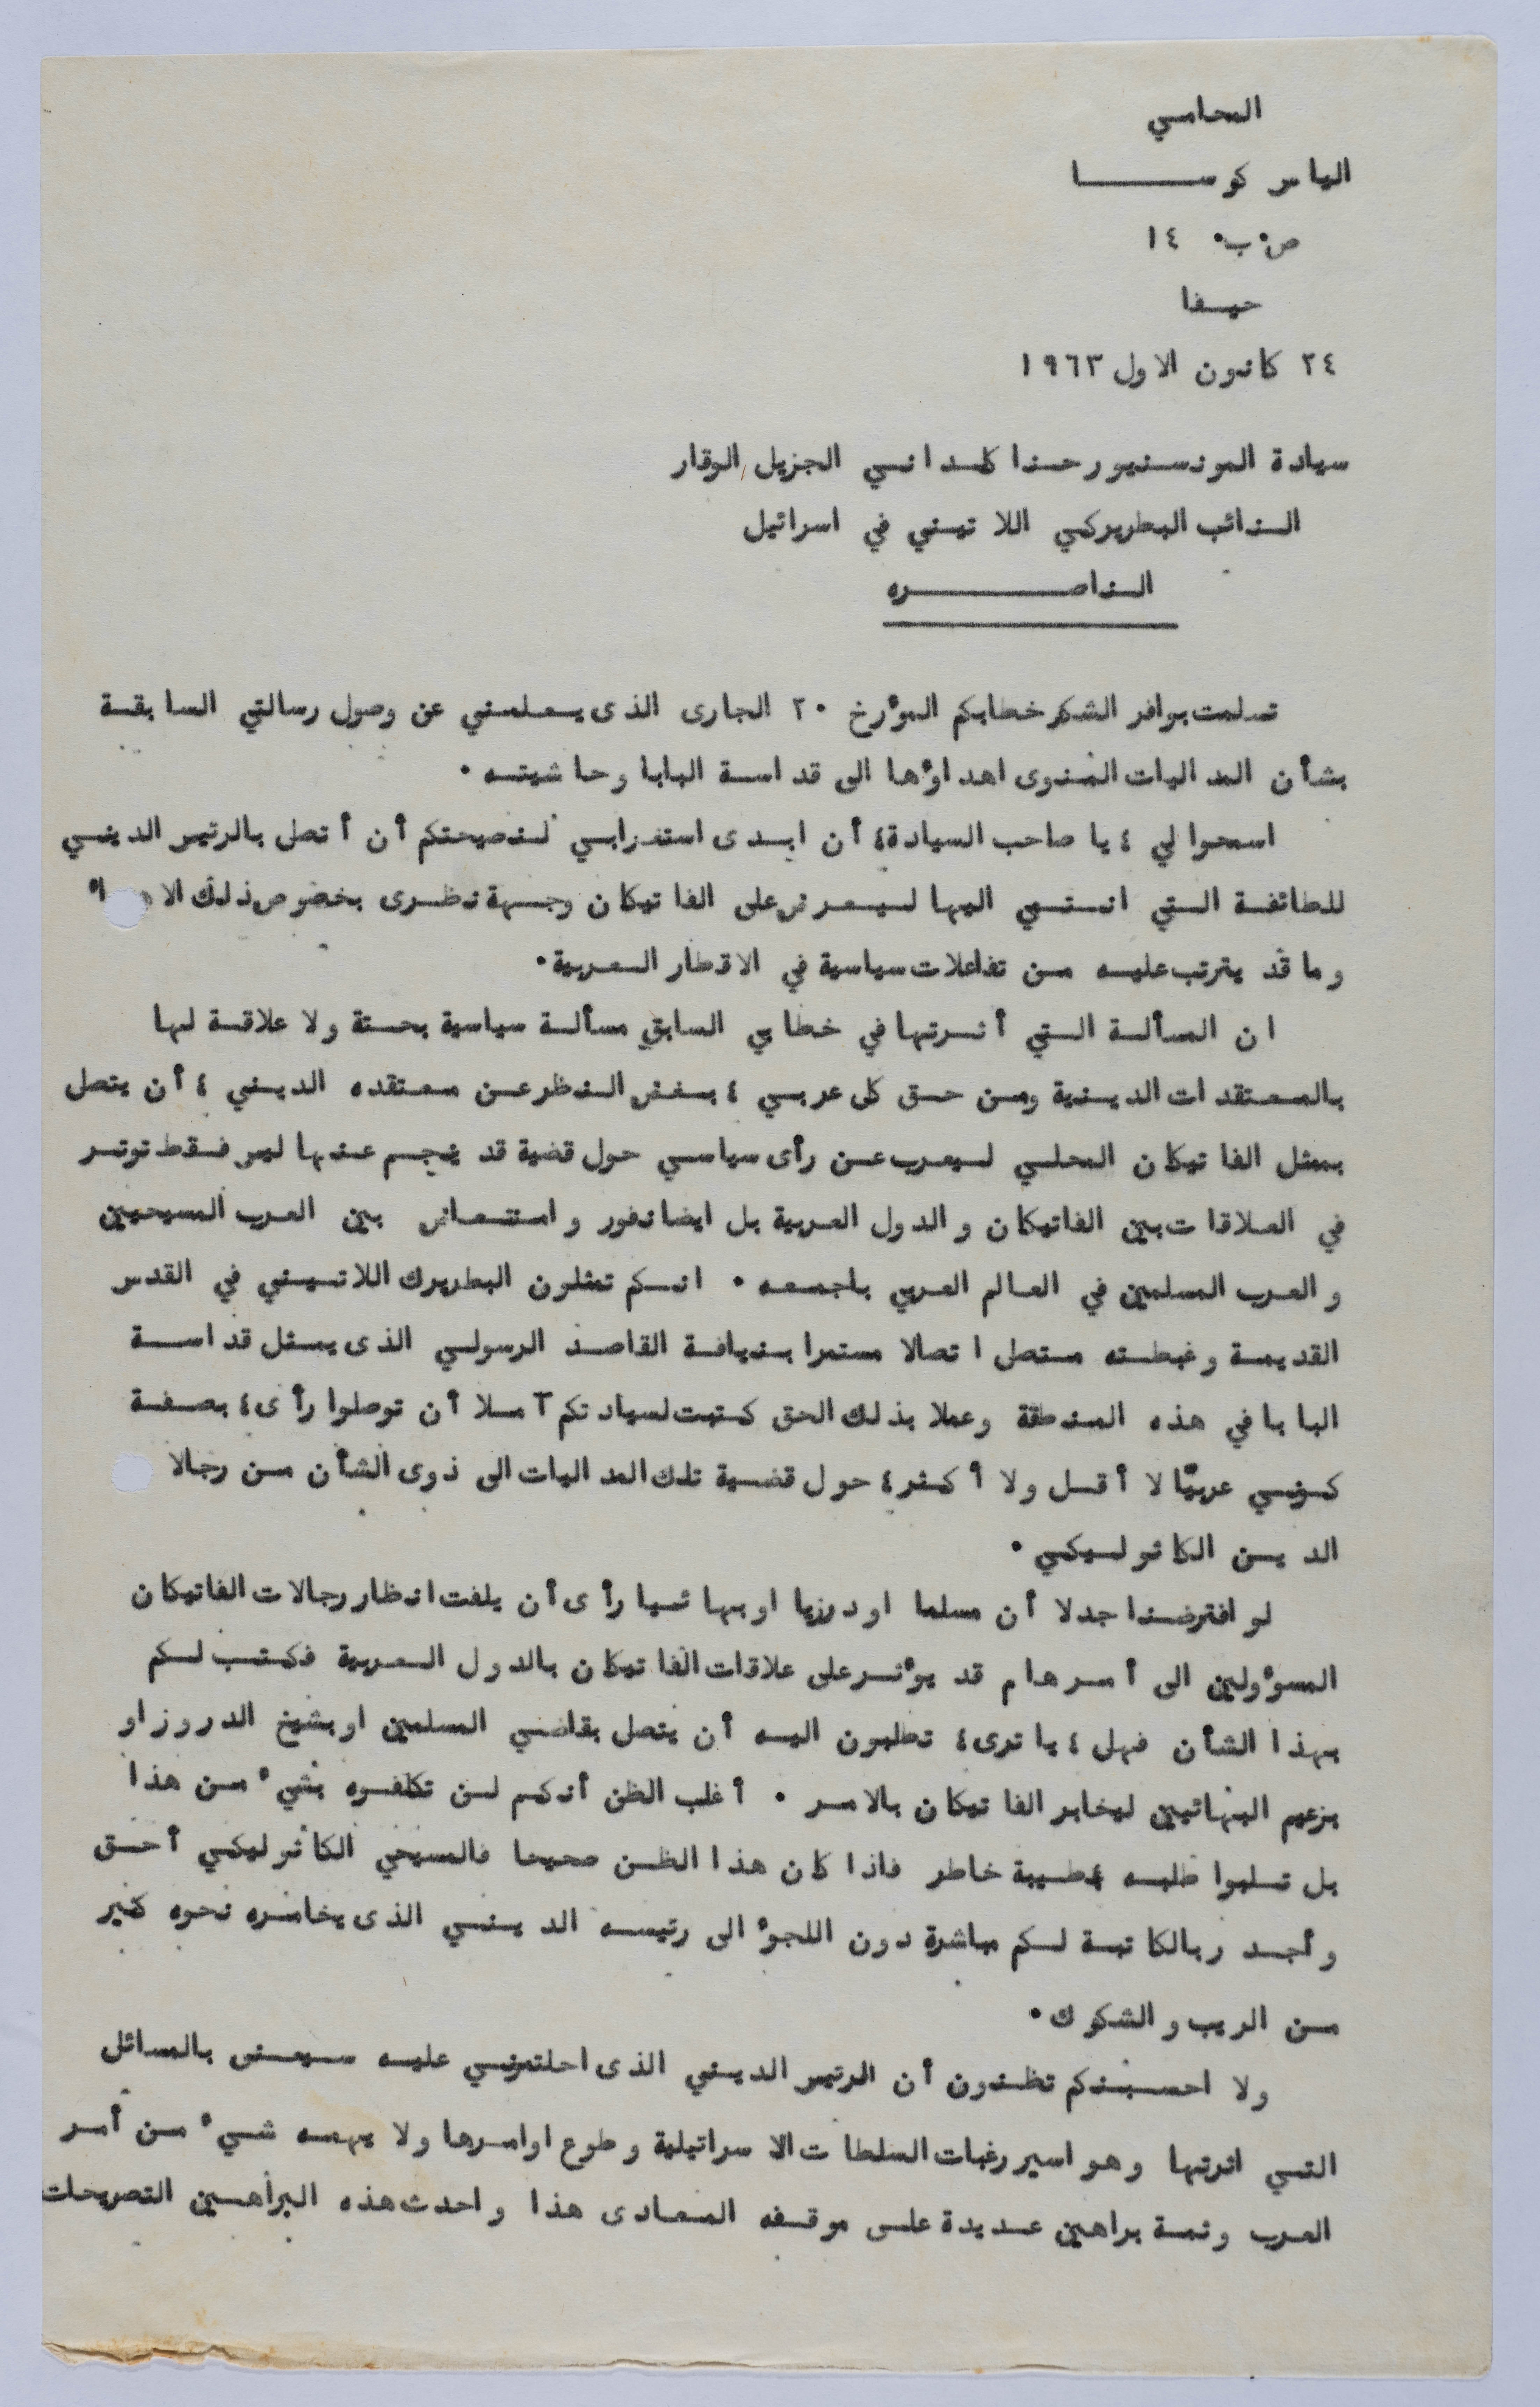 المحامي
الياس كوســـــا
ص٠ ب٠ ١٤
حيفا
٢٤ كانون الاول ١٩٦٣
سيادة المونسنيور حنا كلداني الجزيل الوقار
النائب البطريركي اللاتيني في اسرائيل
الناصـــــره
تسلمت بوافر الشكر خطابكم المؤرخ ٢٠ الجارى الذى يعلمني عن وصول رسالتي السابقة
بشأن المداليات المنوى اهداؤها الى قداسة البابا وحاشيته ٠
اسمحوا لي ، يا صاحب السيادة، أن ابدى استغرابي لنصيحتكم أن أتصل بالرئيس الديني
للطائفة التي انتمي اليها ليعرض على الفاتيكان وجهة نظرى بخصوص ذلك
وما قد يترتب عليه من تفاعلات سياسية في الاقطار العربية٠
ان المسألة التي أثرتها في خطابي السابق مسألة سياسية بحتة ولا علاقة لها
بالمعتقدات الدينية ومن حق كل عربي ، بغض النظر عن معتقده الديني ، أن يتصل
بممثل الفاتيكان المحلي ليعرب عن رأى سياسي حول قضية قد ينجم عنها ليس فقط توتر
في العلاقات بين الفاتيكان والدول العربية بل ايضا نفور وامتعاض بين العرب المسيحيين
والعرب المسلمين في العالم العربي باجمعه ٠ انكم تمثلون البطريرك اللاتيني في القدس
القديمة وغبطته متصل اتصالا مستمرا بنيافة القاصد الرسولي الذى يمثل قداسة
البابا في هذه المنطقة وعملا بذلك الحق كتبت لسيادتكم آملا أن توصلوا رأى ، بصفة
كوني عربيًا لا أقل ولا أكثر ، حول قضية تلك المداليات الى ذوى الشأن من رجالا
الدين الكاثوليكي ٠
لو افترضنا جدلا أن مسلما او درزيا او بهائيا رأى أن يلفت انظار رجالات الفاتيكان
المسؤولين الى أمر هام قد يؤثر على علاقات الفاتيكان بالدول العربية فكتب لكم
بهذا الشأن فهل ، يا ترى ، تطلبون اليه أن يتصل بقاضي المسلمين او بشيخ الدروز او
بزعيم البهائيين ليخابر الفاتيكان بالامر ٠ أغلب الظن أنكم لن تكلفوه بشيء من هذا
بل تسلبوا طلبه بطيبة خاطر فاذا كان هذا الظن صحيحا فالمسيحي الكاثوليكي أحق
وأجدر بالكاتبة لكم مباشرة دون اللجؤ الى رئيسه الديني الذى يخامره نحوه كثير
من الريب والشكوك٠
ولا احسبنكم تظنون أن الرئيس الديني الذى احلتموني عليه سيعنى بالمسائل
التي اثرتها وهو اسير رغبات السلطات الاسرائيلية وطوع اوامرها ولا يهمه شيء من أمر
العرب وثمة براهين عديدة على موقفه المعادى هذا واحدث هذه البراهين التصريحات